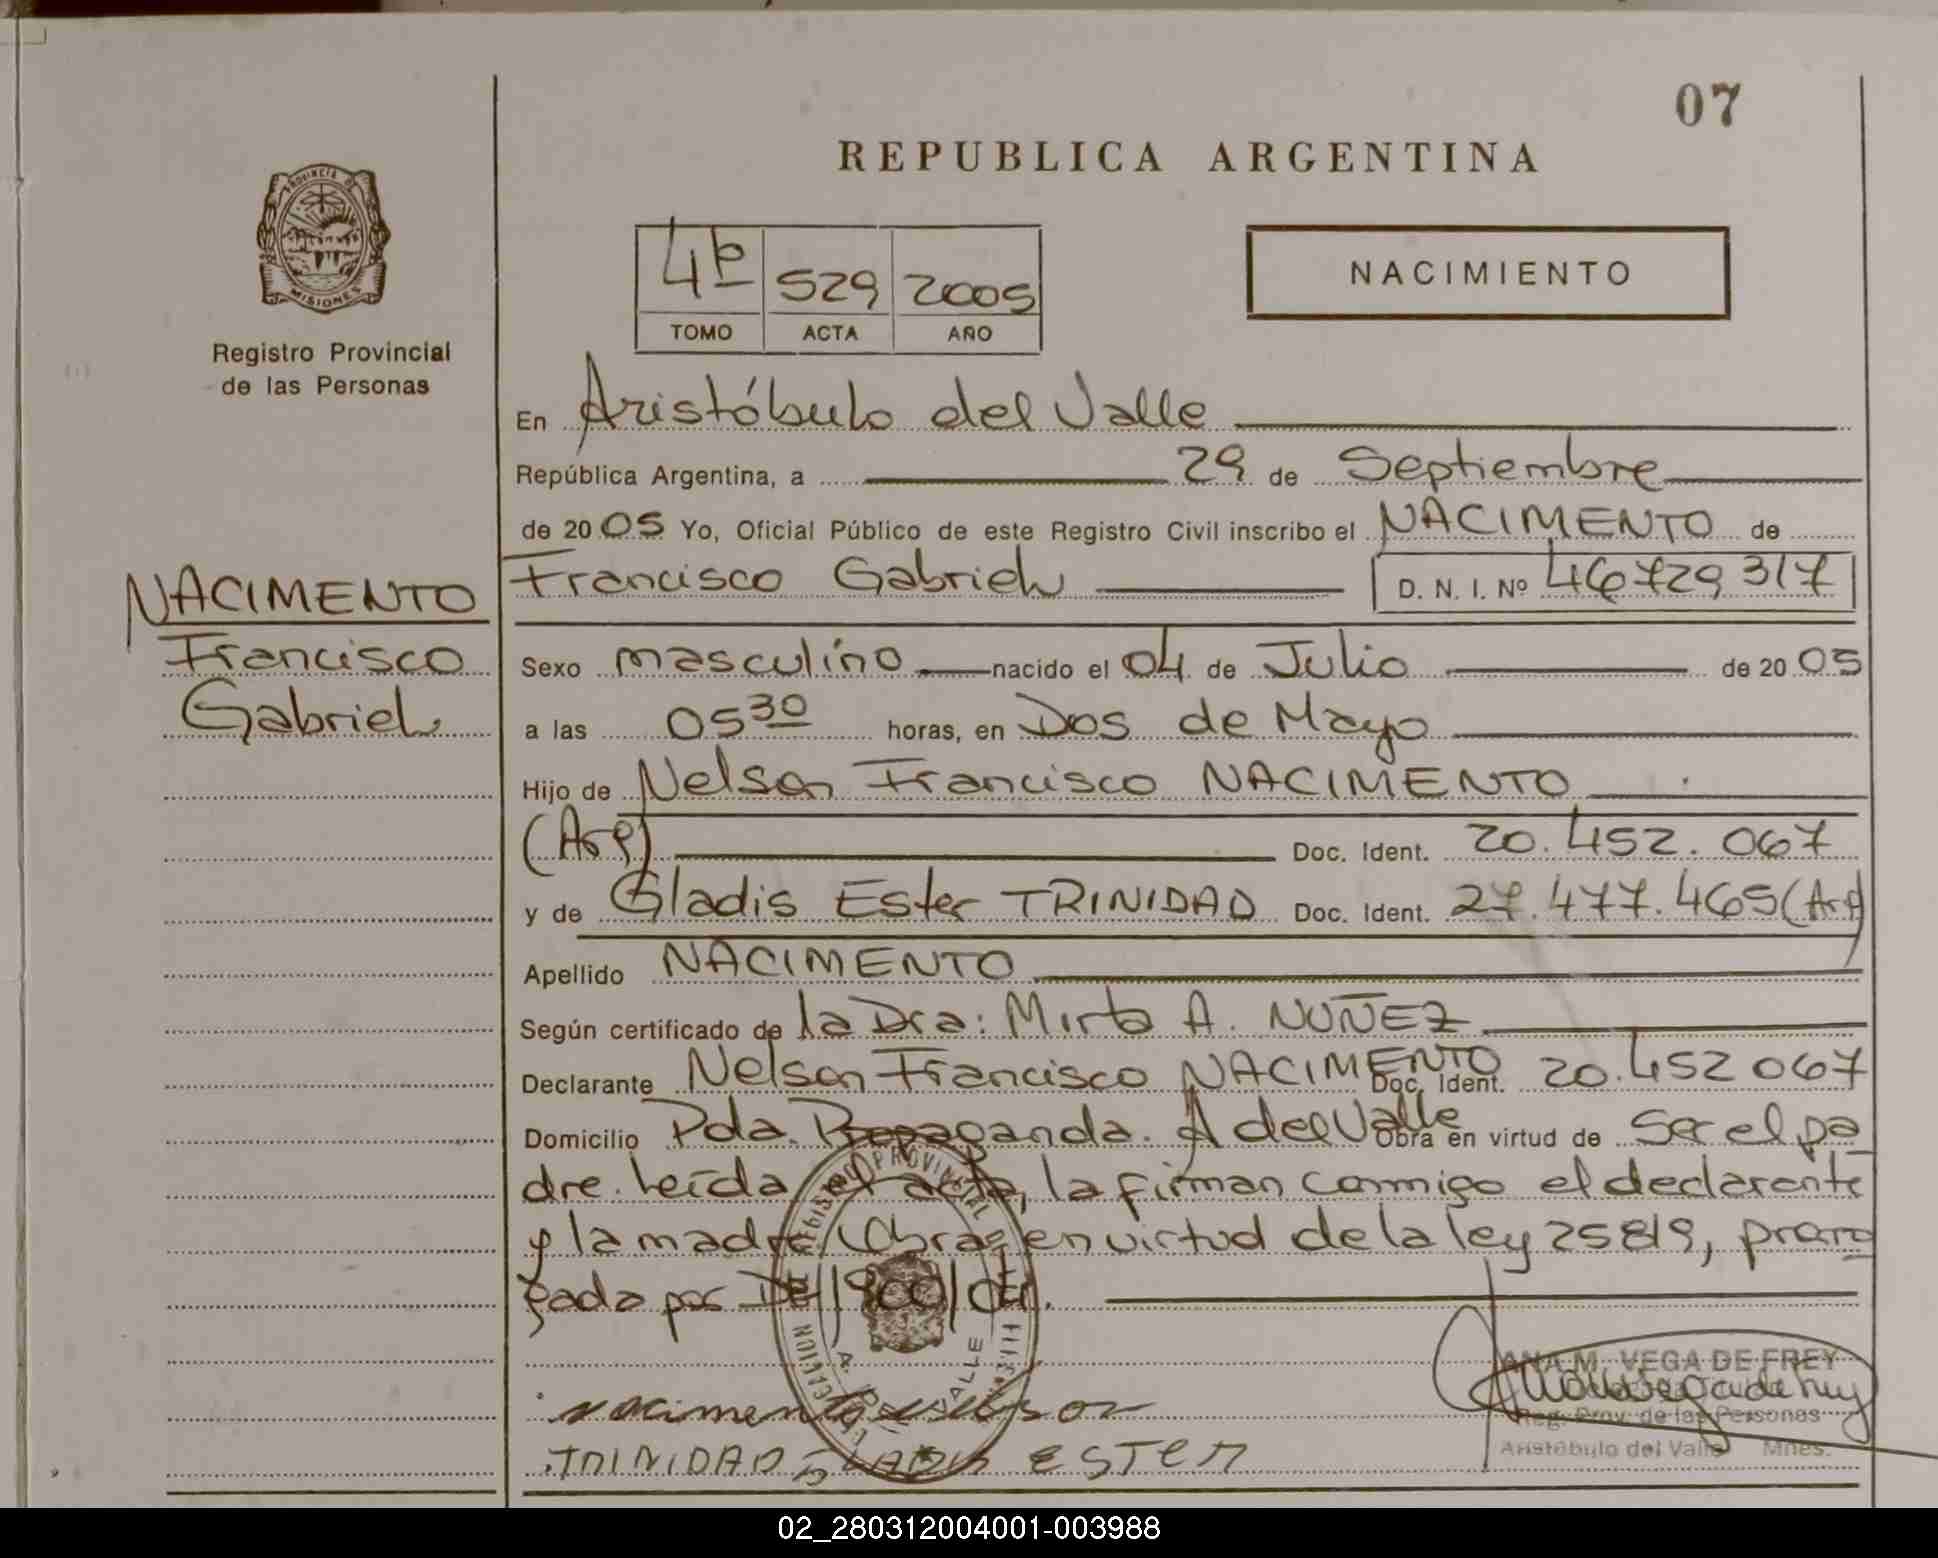 07
REPUBLICA ARGENTINA
PROVINCIA DE
MISIONES
Registro Provincial
de las Personas
4º 529 2005
TOMO ACTA AÑO
NACIMIENTO
En Aristóbulo del Valle
República Argentina, a 29 de Septiembre
de 2005 Yo, Oficial Público de este Registro Civil inscribo el NACIMENTO de
Francisco Gabriel D. N. I. Nº 46729317
NACIMENTO
Francisco
Gabriel
Sexo masculino nacido el 04 de Julio de 2005
a las 05 30 horas, en Dos de Mayo
Hijo de Nelson Francisco NACIMENTO
(Arg) Doc. Ident. 20.452.067
y de Gladis Ester TRINIDAD Doc. Ident. 27.477.465 (Arg)
Apellido NACIMENTO
Según certificado de la Dra: Mirta A. NUÑEZ
Declarante Nelson Francisco NACIMENTO Doc. Ident. 20.452067
Domicilio Pda. Propaganda. A del Valle Obra en virtud de Ser el pa
dre. Leída el acta, la firman conmigo el declarante
y la madre, Obrase en virtud de la ley 25819, prorro
gada por 1900/04.
REGISTRO PROVINCIAL
VALLE
nacimento nelson
TRINIDAD GLADIS ESTER
ANA M. VEGA DE FREY
Reg. Prov. de las Personas
Aristóbulo del Valle Mnes.
02_280312004001-003988